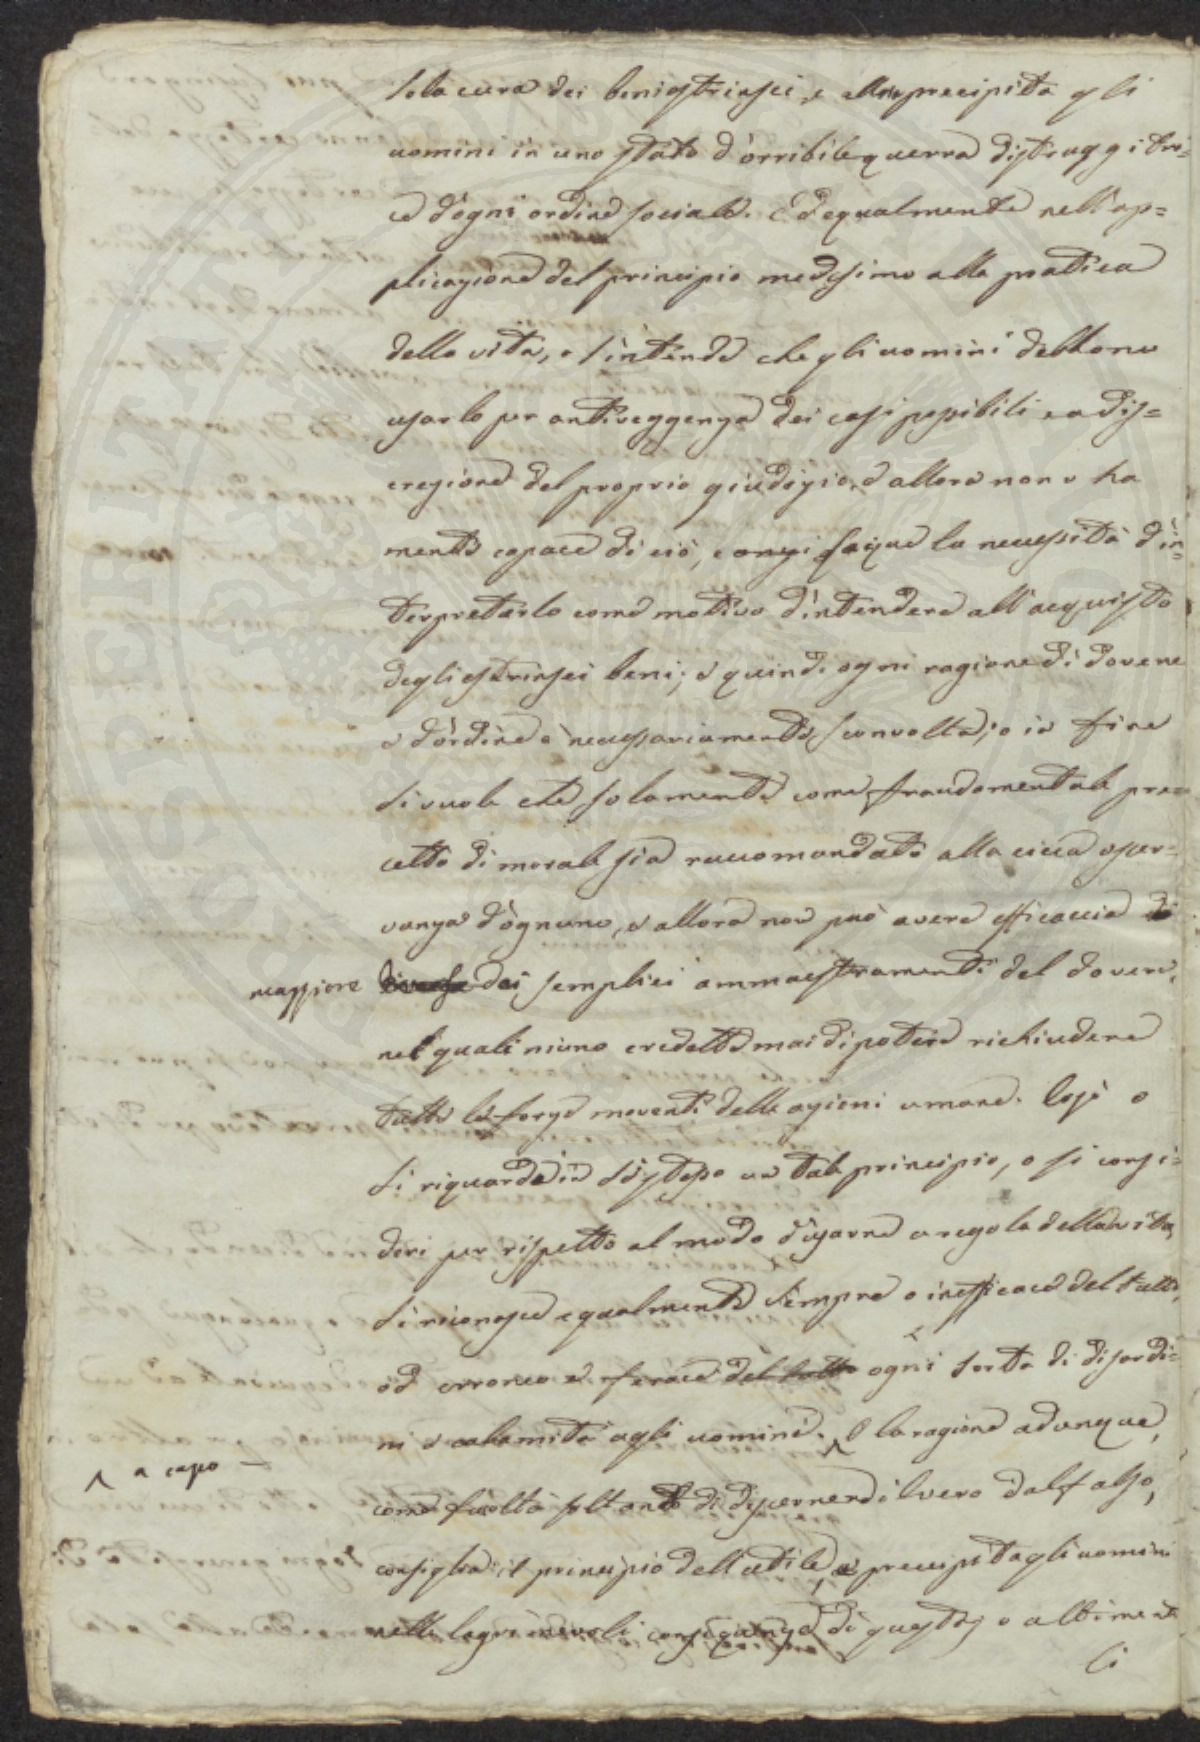 sola cura dei beni estrinseci, e allora precipita gli
uomini in uno stato d'orribile guerra distruggitri=
ce d'ogni ordine sociale. Ed egualmente nell'ap=
plicazione del principio medesimo alla pratica
della vita, o s'intende che gli uomini debbono
usarlo per antiveggenza dei casi possibili e a dis=
crezione del proprio giudizio, e allora non v'ha
mente capace di ciò, e anzi la necessità d'in=
terpretarlo come motivo d'intendere all'acquisto
degli estrinseci beni; e quindi ogni ragione di dovere
e d'ordine è necessariamente sconvolta; o in fine
si vuole che solamente come fondamentale pre=
cetto di morale sia raccomandato alla cieca osser=
vanza d'ognuno, e allora non può avere efficaccia di
maggiore diversa dai semplici ammaestramenti del dovere,
nei quali niuno credette mai di potere richiudere
tutte le forze moventi delle azioni umane. Così o
si riguarda in se stesso un tale principio, o si consi=
deri per rispetto al modo d'usarne a regola della vita,
si riconosce egualmente sempre o inefficace del tutto,
od erroneo e ferace del tutto ogni sorta di disordi=
ni e calamità agli uomini. E la ragione adunque,
a capo
come facoltà soltanto di discernere il vero dal falso,
consiglia il principio dell'utile, e precipita gli uomini
nelle lagrimevoli conseguenze di questo; o altiment
li